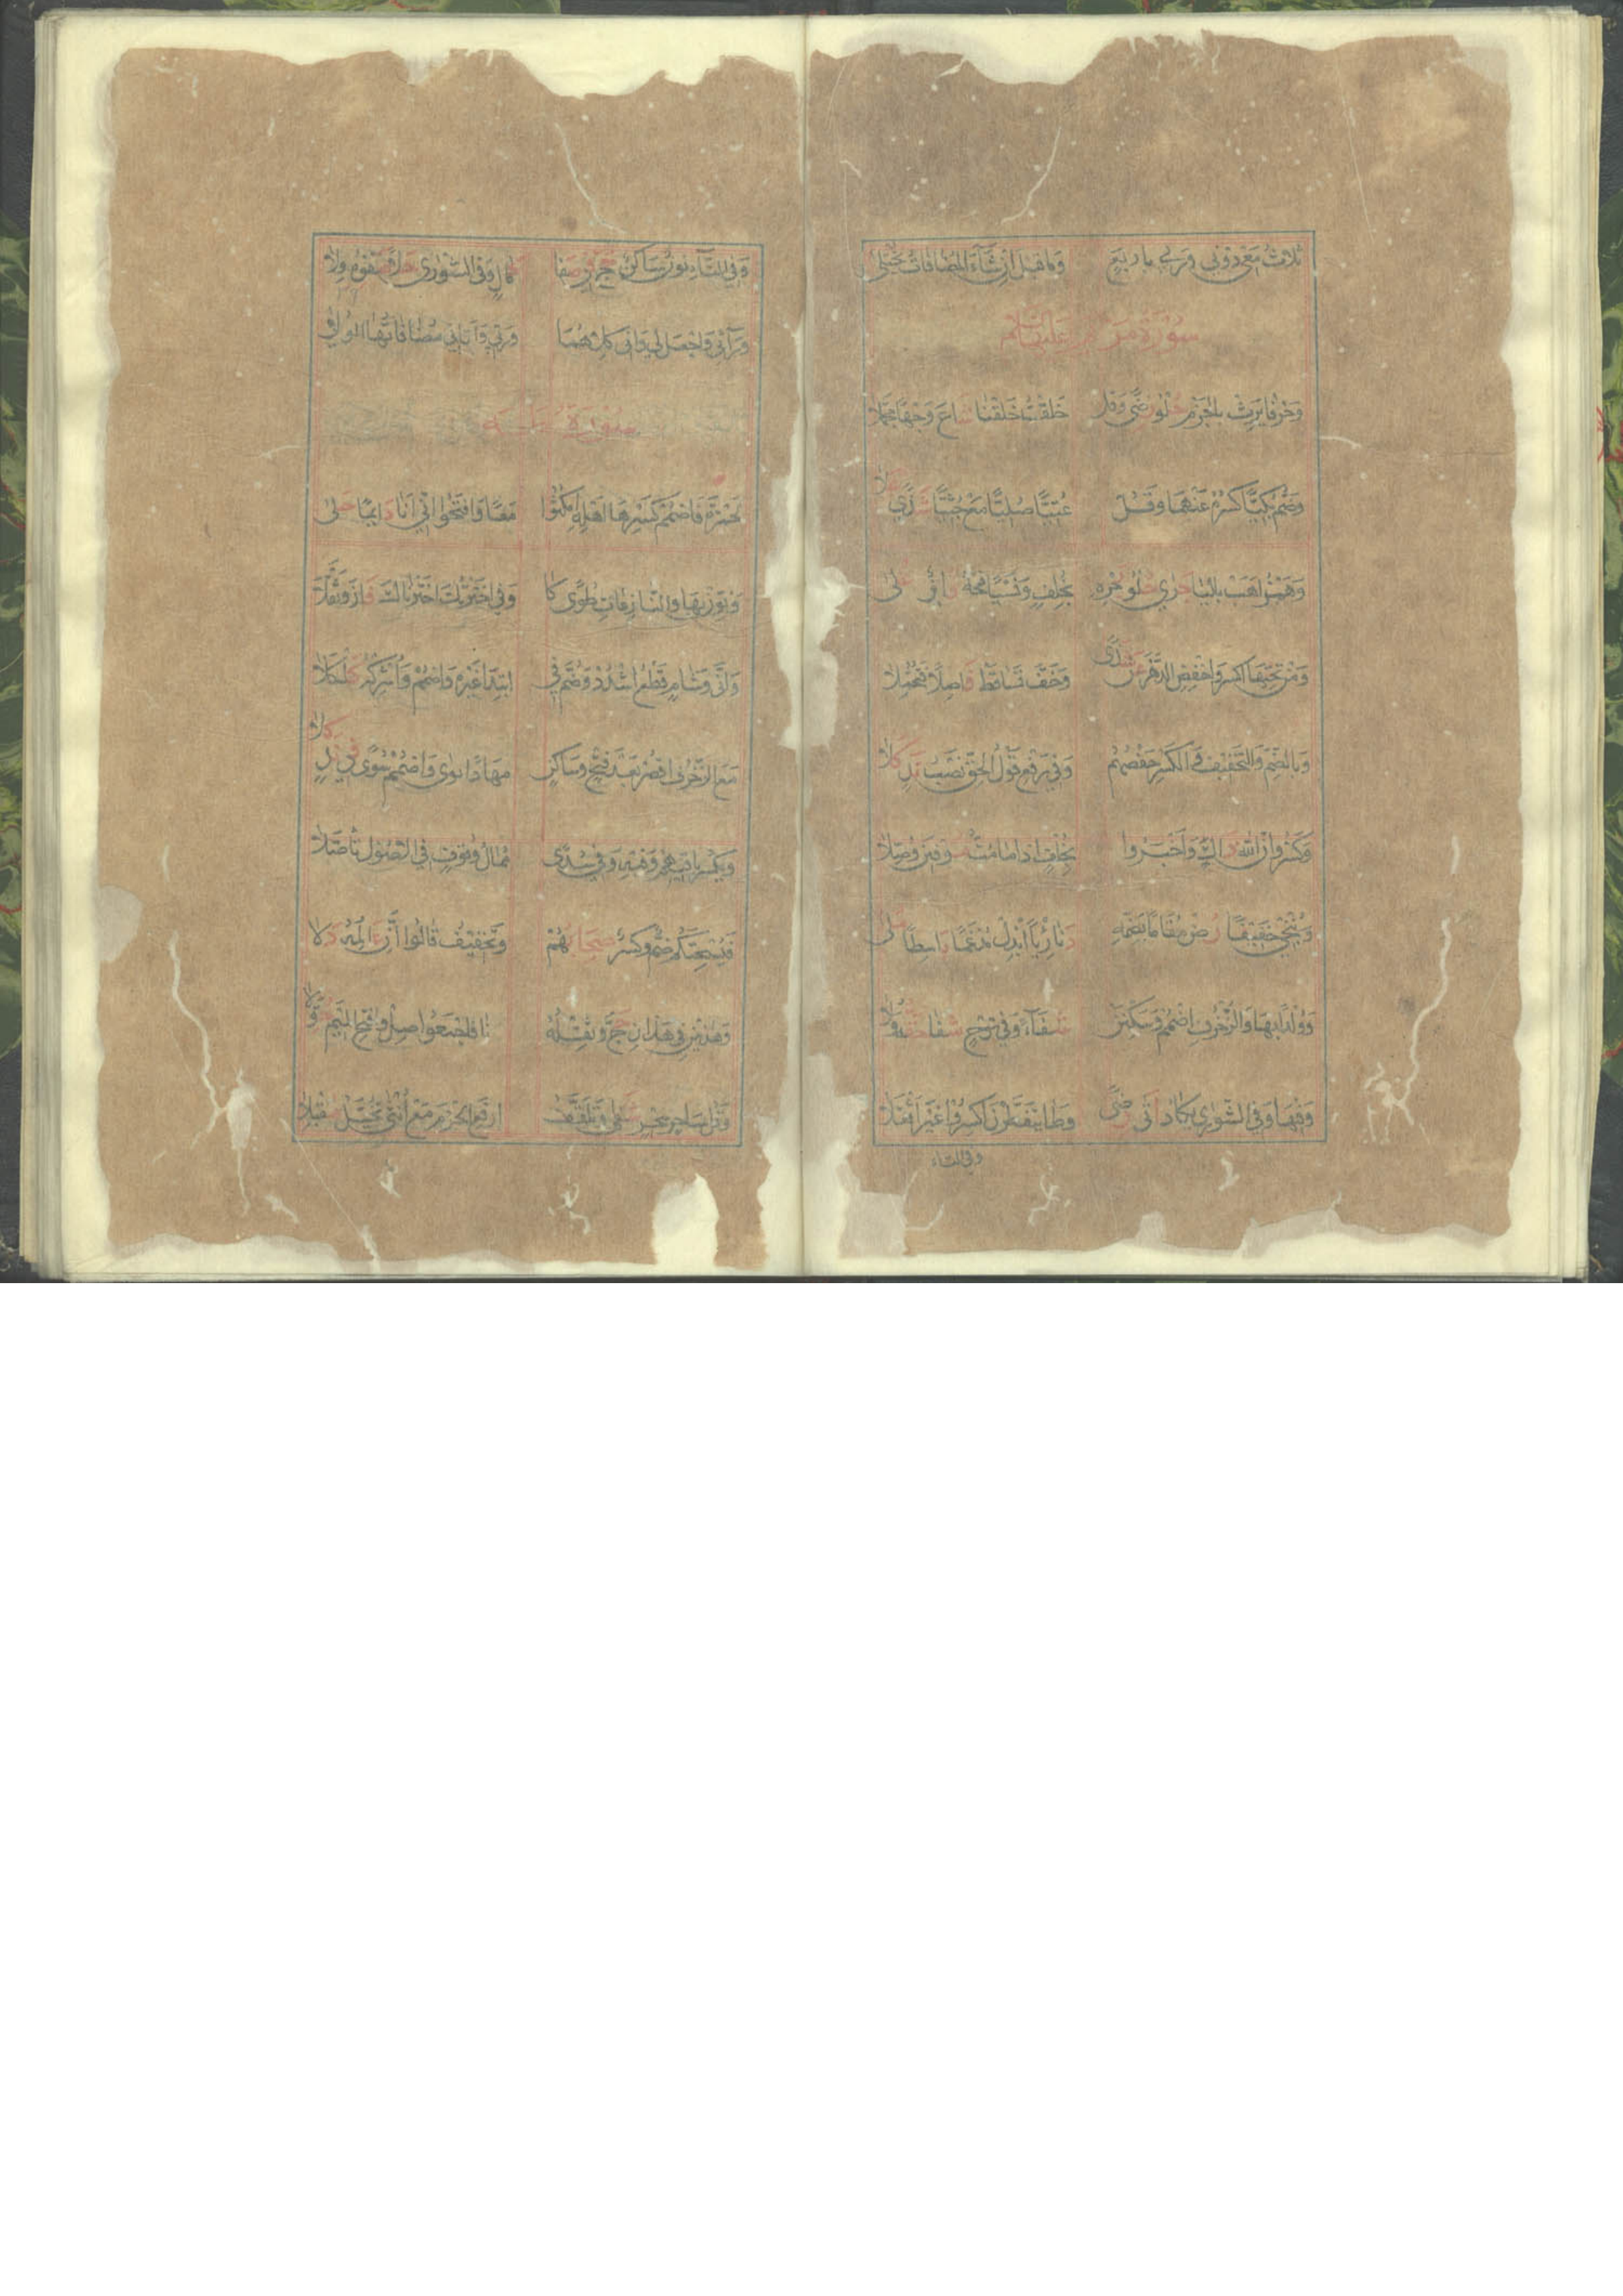 ثلاث معي دوني وربي باربع وما قيل ان شاء المضافات تجتلى
سورة مريم عليها السلام
وحرفا يرث بالجزم حلو رضى وقل خلقت خلقنا شاع وجها مجملا
وضم بكيا كسره عنهما وقل عتيا صليا مع جثيا شذى علا
وهمز اهب باليا جرى حلو بحره بخلف ونسيا فتحه فائز على
ومن تحتها اكسر واخفض الدهر عن شذى وخف تساقط فاصلا فتحملا
وبالضم والتخفيف والكسر حفصهم وفي رفع قول الحق نصب ند كلا
وكسر وان الله ذاك واخبروا بخلف اذا ما مت موفين وصلا
وننجي خفيفا رض مقاما بضمه دنا رئيا ابدل مدغما باسطا ملى
وولدا بها والزخرف اضمم وسكنن شفاء وفي نوح شفا حقه ولا
وفيها وفي الشورى يكاد اتى رضى وطا يتفطرن اكسروا غير اثقلا
وفي التاء
وفي التاء نون ساكن حج في صفا كمال وفي الشورى حلا صفوه ولا
ورائي واجعل لي واني كلاهما وربي وآتاني مضافاتها الولا
سورة طه
لحمزة فاضمم كسر ها اهله امكثوا معا وافتحوا اني انا دائما حلى
ونون بها والنازعات طوى ذكا وفي اخترتك اخترناك فاز وثقلا
وانا وشام قطع اشدد وضم في ابتدا غيره واضمم واشركه كلكلا
مع الزخرف اقصر بعد فتح وساكن مهادا ثوى واضمم سوى في ند كلا
ويكسر باقيهم وفيه وفي سدى ممال وقوف في الاصول تاصلا
فيسحتكم ضم وكسر صحابهم وتخفيف قالوا ان عالمه دلا
وهذين في هذان حج وثقله دنا فاجمعوا صل وافتح الميم حولا
وقل ساحر سحر شفا وتلقف ارفع الجزم مع انثى تخيل مقبلا